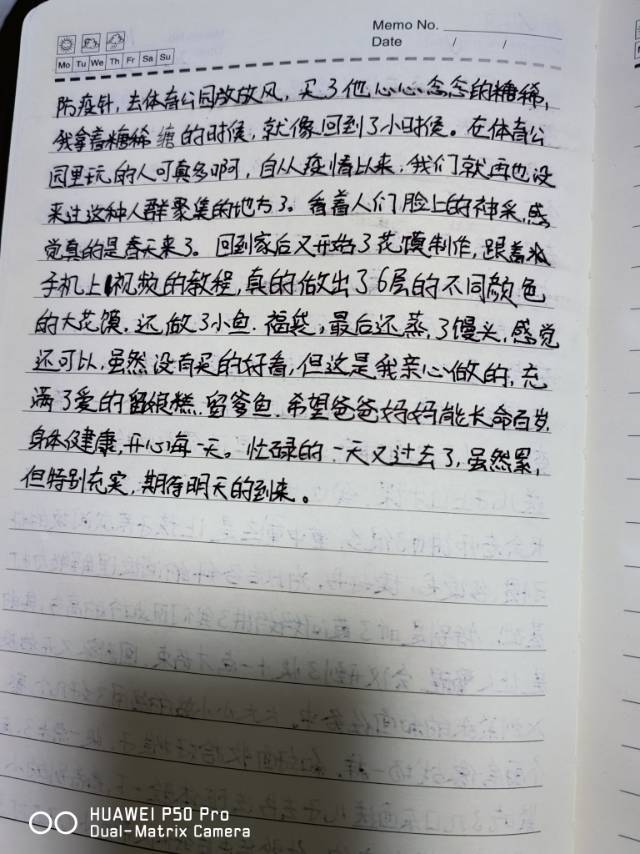 Memo No.
Date / /
Mo Tu We Th Fr Sa Su
防疫针，去体育公园放放风，买了他心心念念的糖稀，
我拿着糖稀缠的时候，就像回到了小时侯。在体育公
园里玩的人可真多啊，自从疫情以来，我们就再也没
来过这种人群聚集的地方了。看着人们脸上的神采，感
觉真的是春天来了。回到家后又开始了花馍制作，跟着
手机上视频的教程，真的做出了6层的不同颜色
的大花馍。还做了小鱼.福袋，最后还蒸了馒头，感觉
还可以，虽然没有买的好看，但这是我亲心做的，充
满了爱的留娘糕.留爹鱼.希望爸爸妈妈能长命百岁，
身体健康，开心每一天。忙碌的一天又过去了，虽然累，
但特别充实，期待明天的到来。
HUAWEI P50 Pro
Dual-Matrix Camera